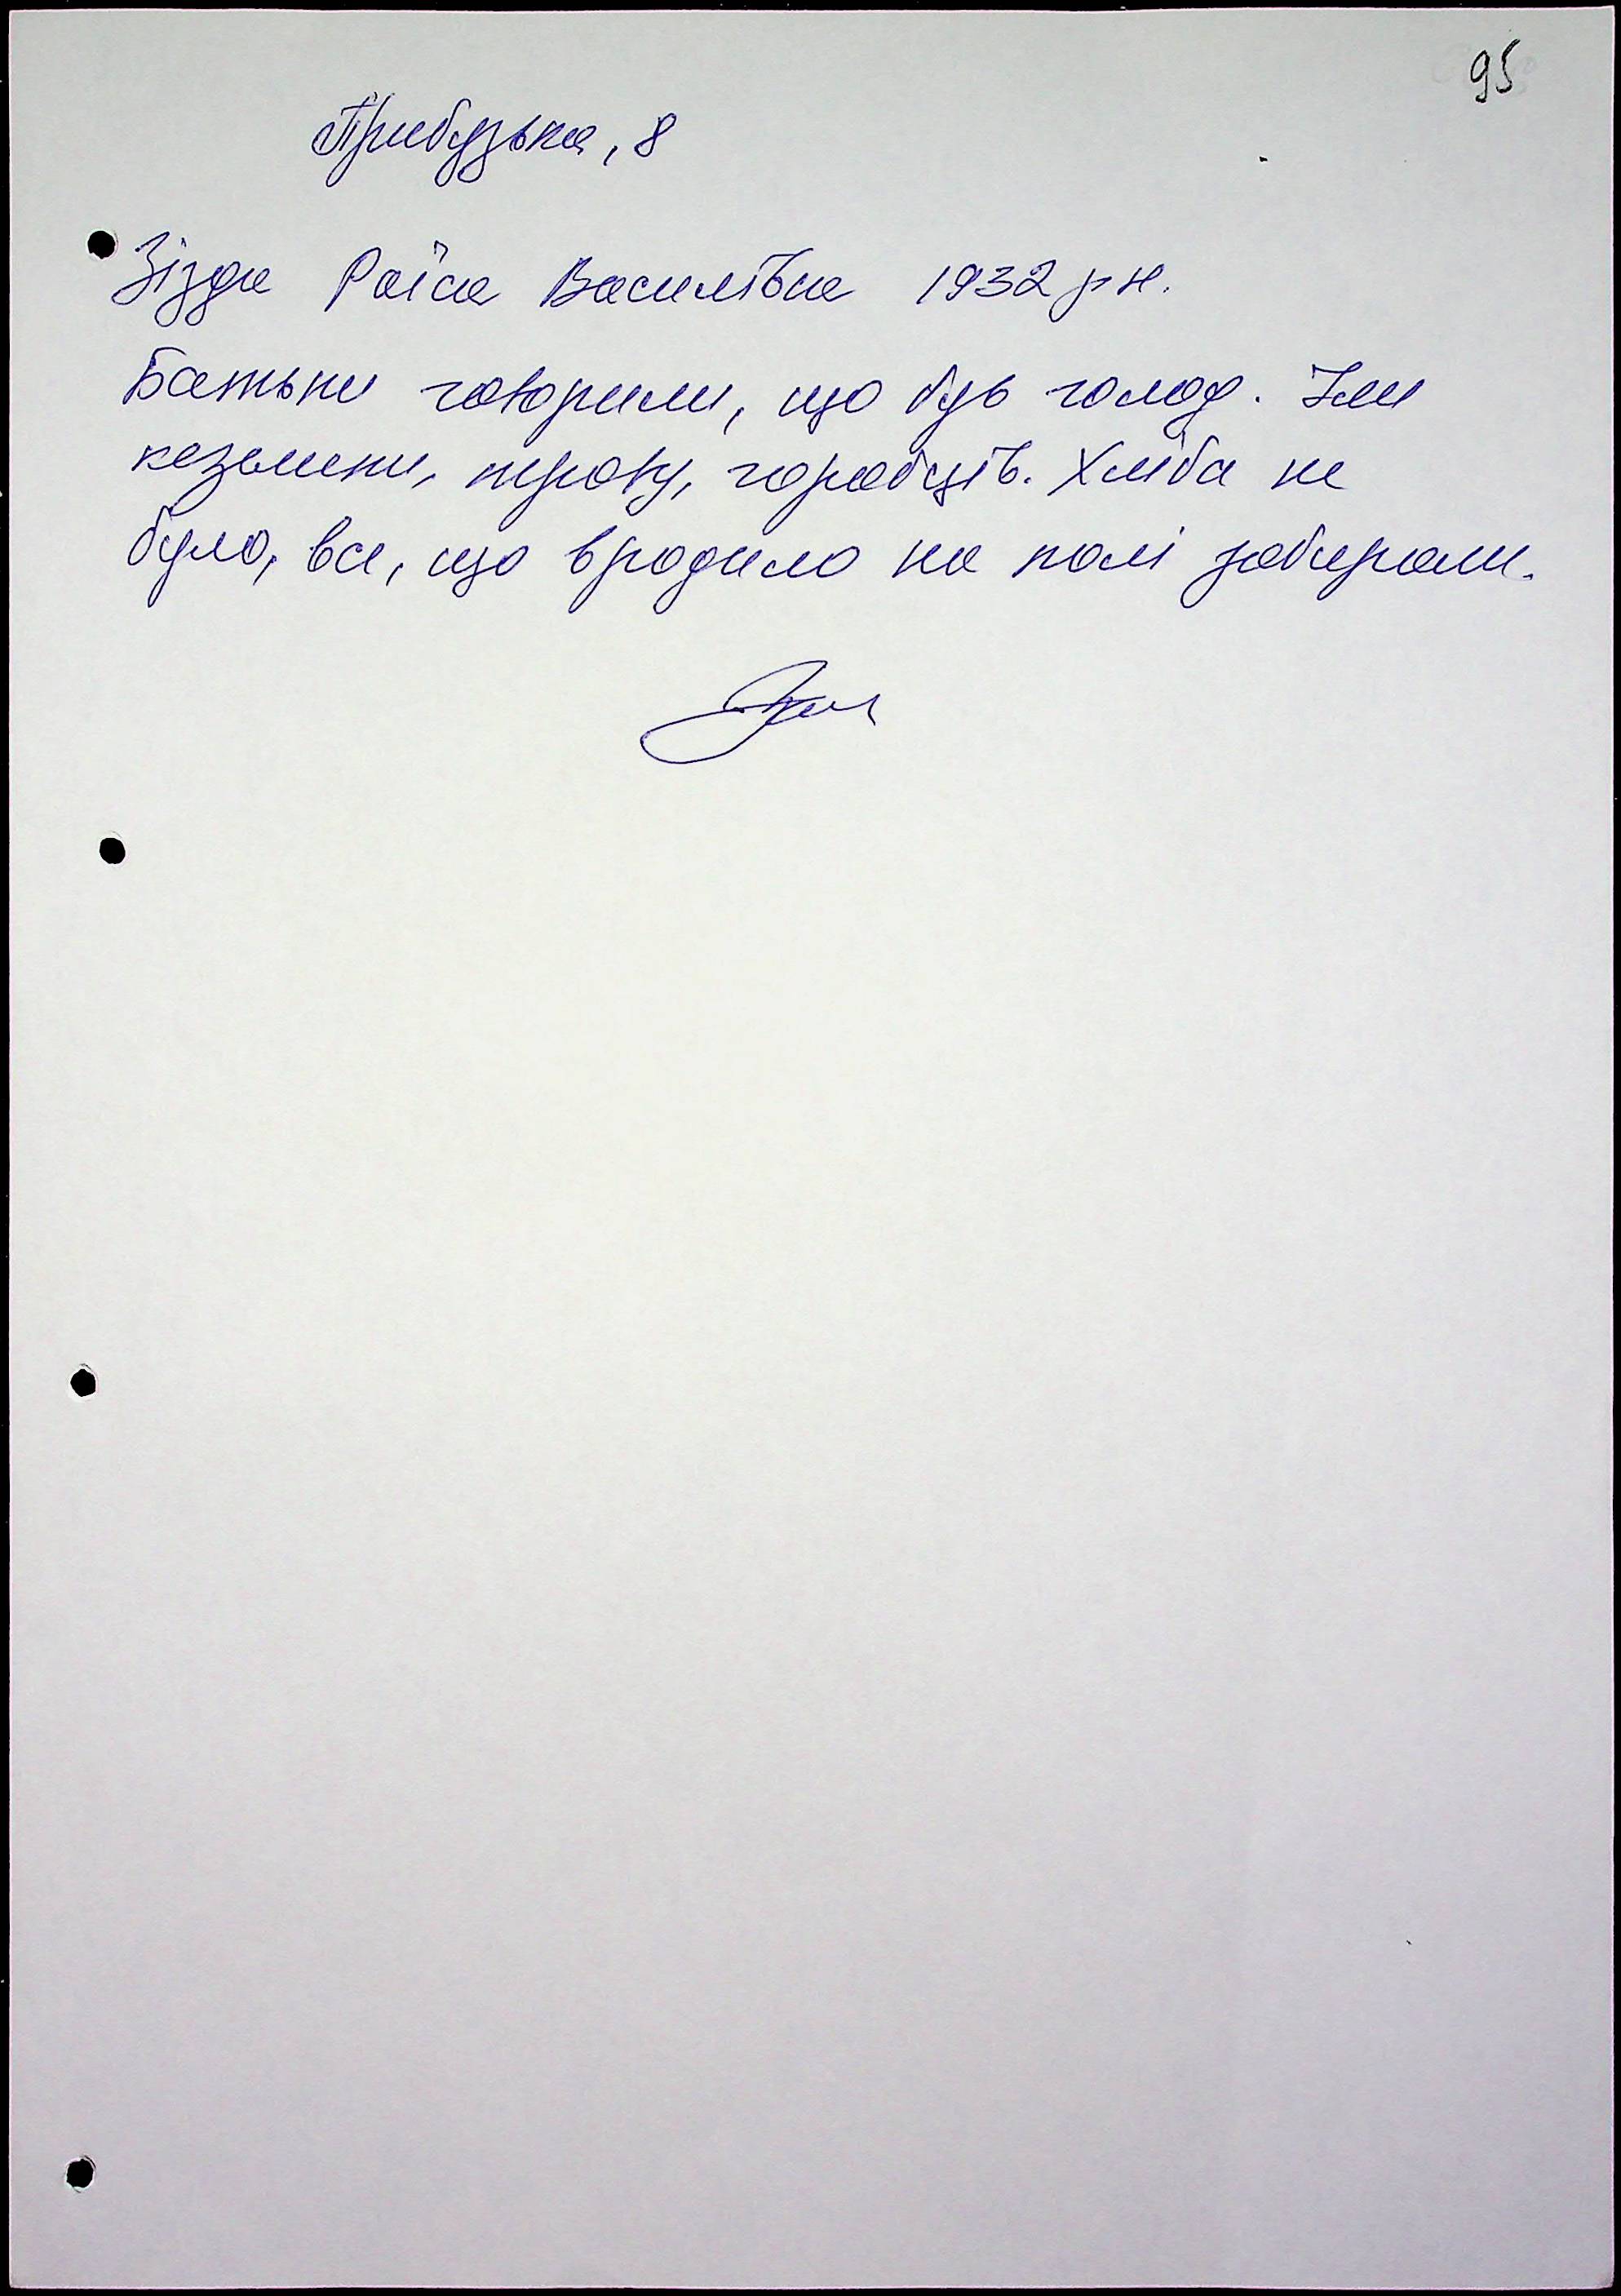 95
Прибузька, 8
Зізда Раїса Василівна 1932 р н.
Батьки говорили, що був голод. Їли
козельки, траву, горобців. Хліба не
було, все, що вродило на полі забирали.